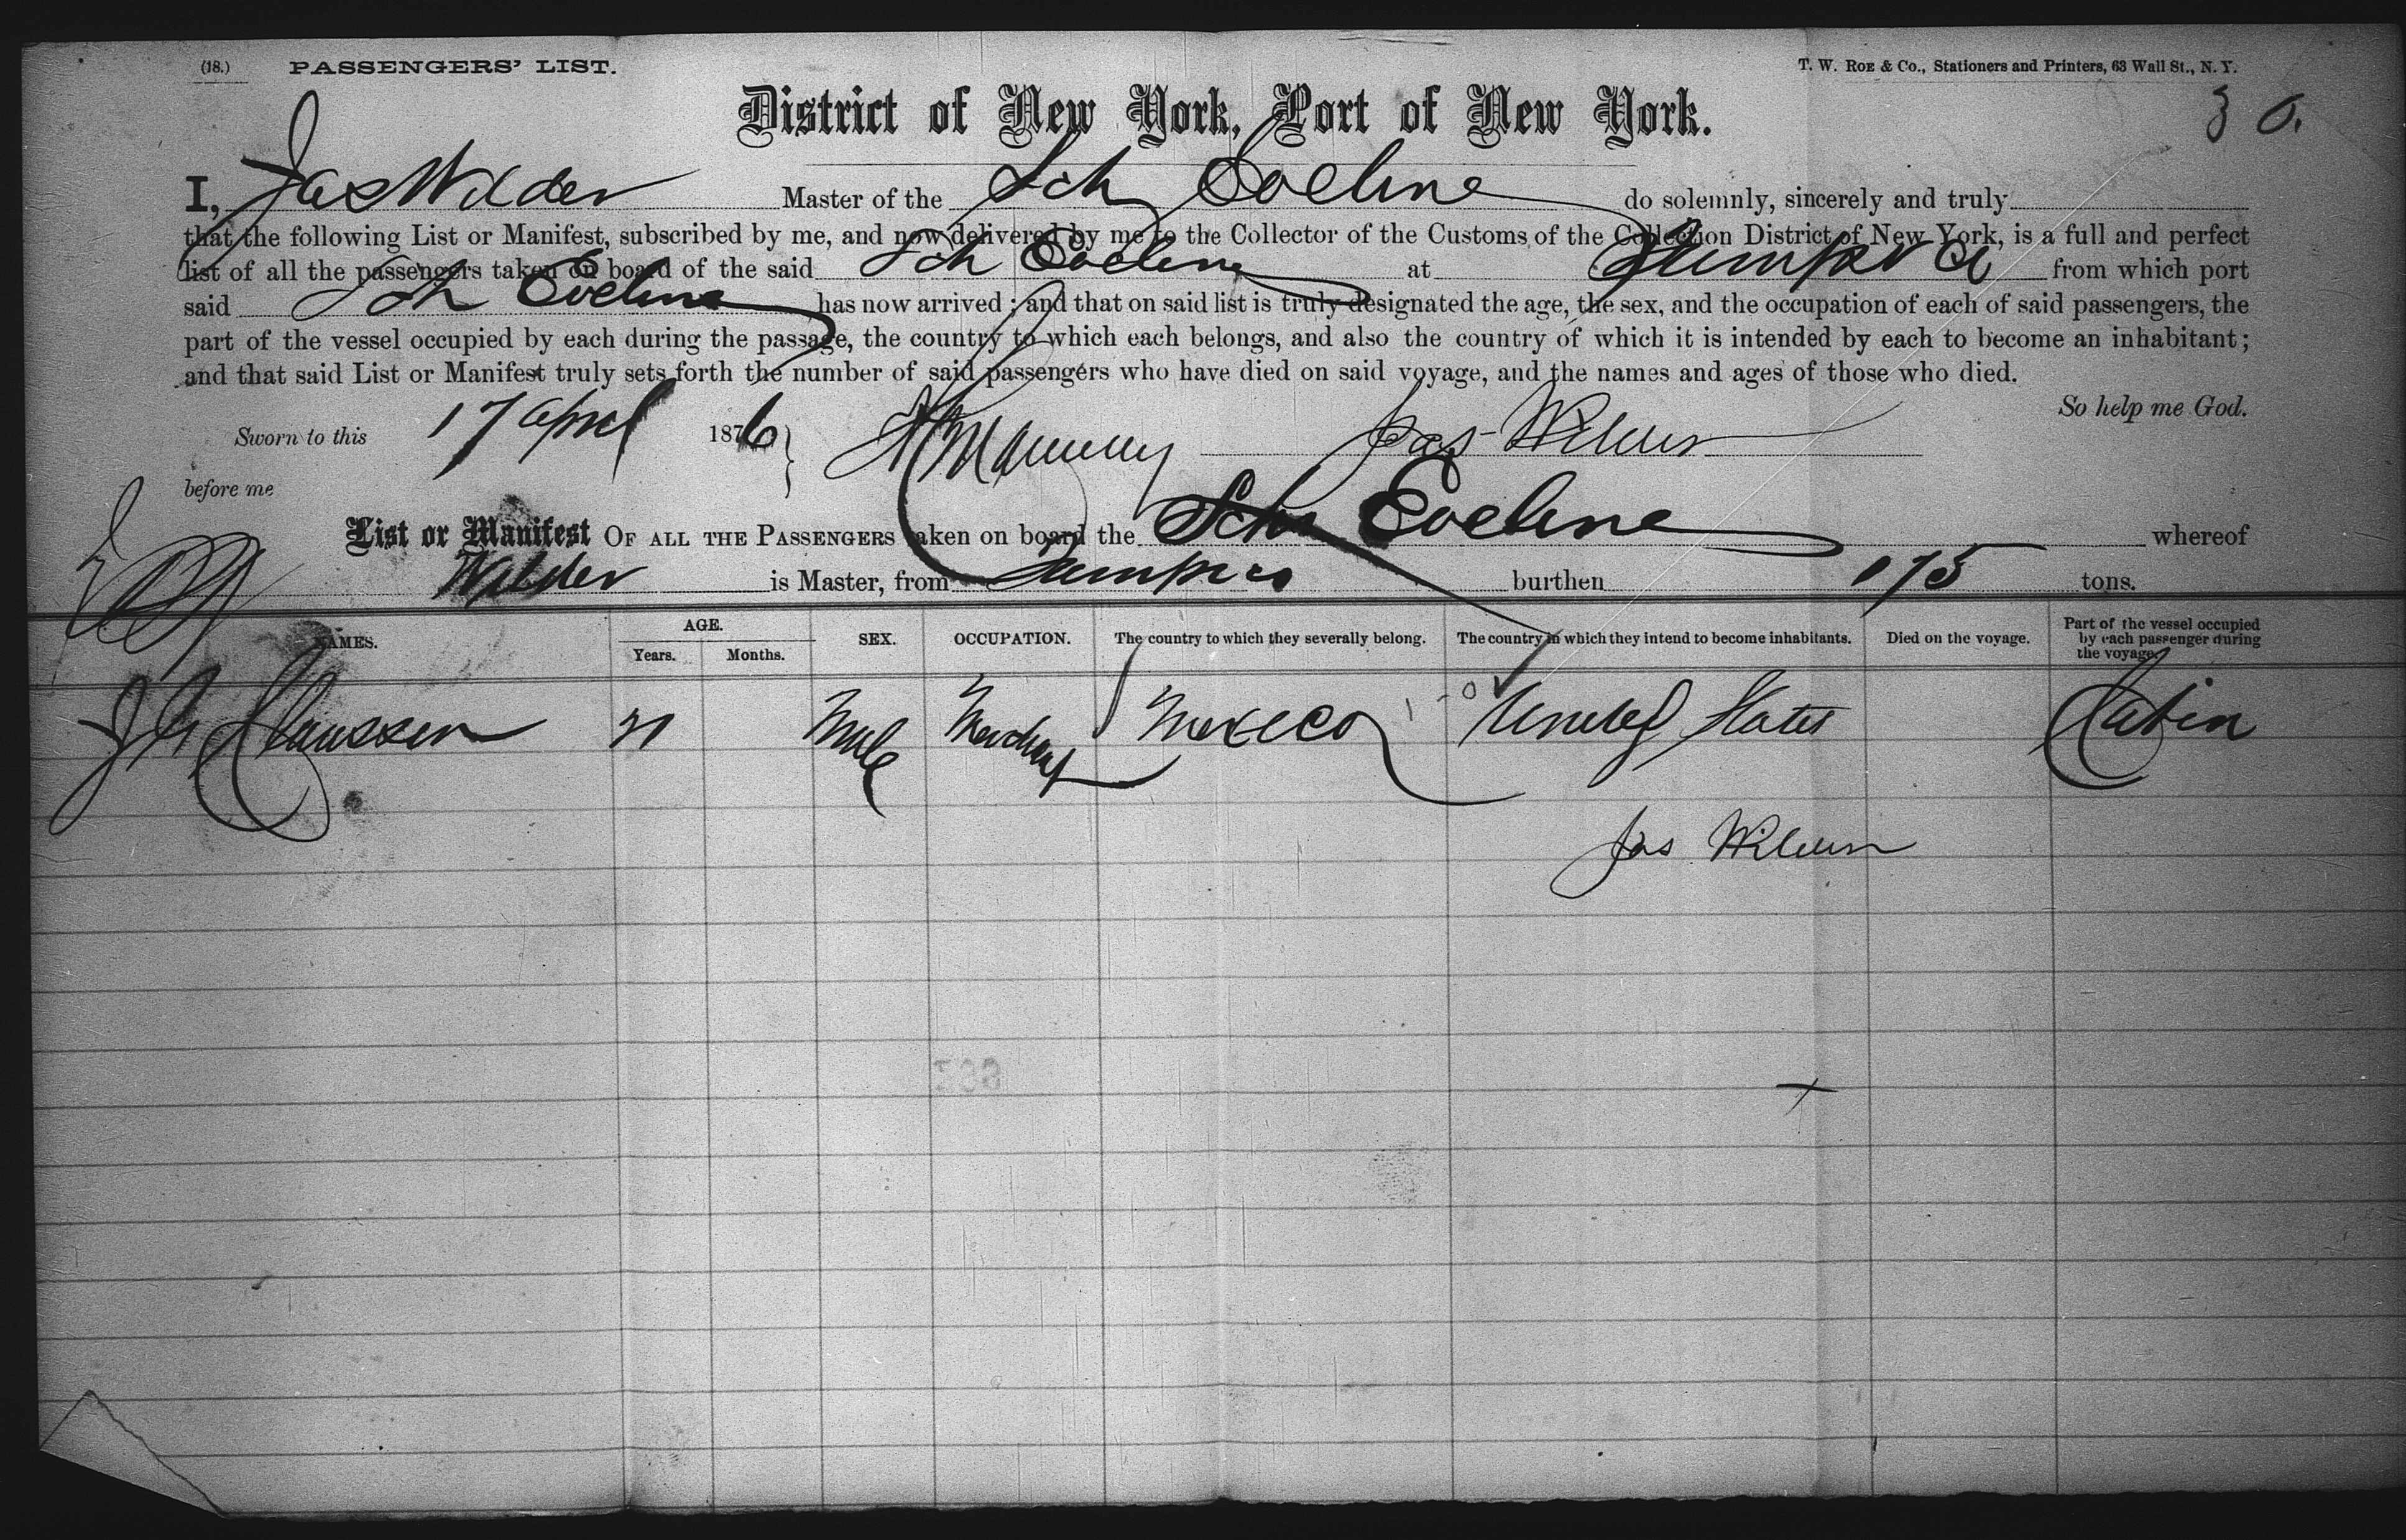 (18.) PASSENGERS' LIST. T. W. ROE & Co., Stationers and Printers, 63 Wall St., N. Y.
District of New York, Port of New York.
I, Jas Wilder Master of the Sch Eveline do solemnly, sincerely and truly
that the following List or Manifest, subscribed by me, and now delivered by me to the Collector of the Customs of the Collection District of New York, is a full and perfect
list of all the passengers taken on board of the said Sch Eveline at Tampico from which port
said Sch Eveline has now arrived; and that on said list is truly designated the age, the sex, and the occupation of each of said passengers, the
part of the vessel occupied by each during the passage, the country to which each belongs, and also the country of which it is intended by each to become an inhabitant;
and that said List or Manifest truly sets forth the number of said passengers who have died on said voyage, and the names and ages of those who died.
So help me God.
Sworn to this 17 April 1876 Jas Wilder
before me
List or Manifest OF ALL THE PASSENGERS taken on board the Schr Eveline whereof
Wilder is Master, from Tampico burthen 175 tons.
NAMES. AGE. Years. Months. SEX. OCCUPATION. The country to which they severally belong. The country in which they intend to become inhabitants. Died on the voyage. Part of the vessel occupied by each passenger during the voyage.
Claussen Male Merchant Mexico United States Cabin
Jas Wilder